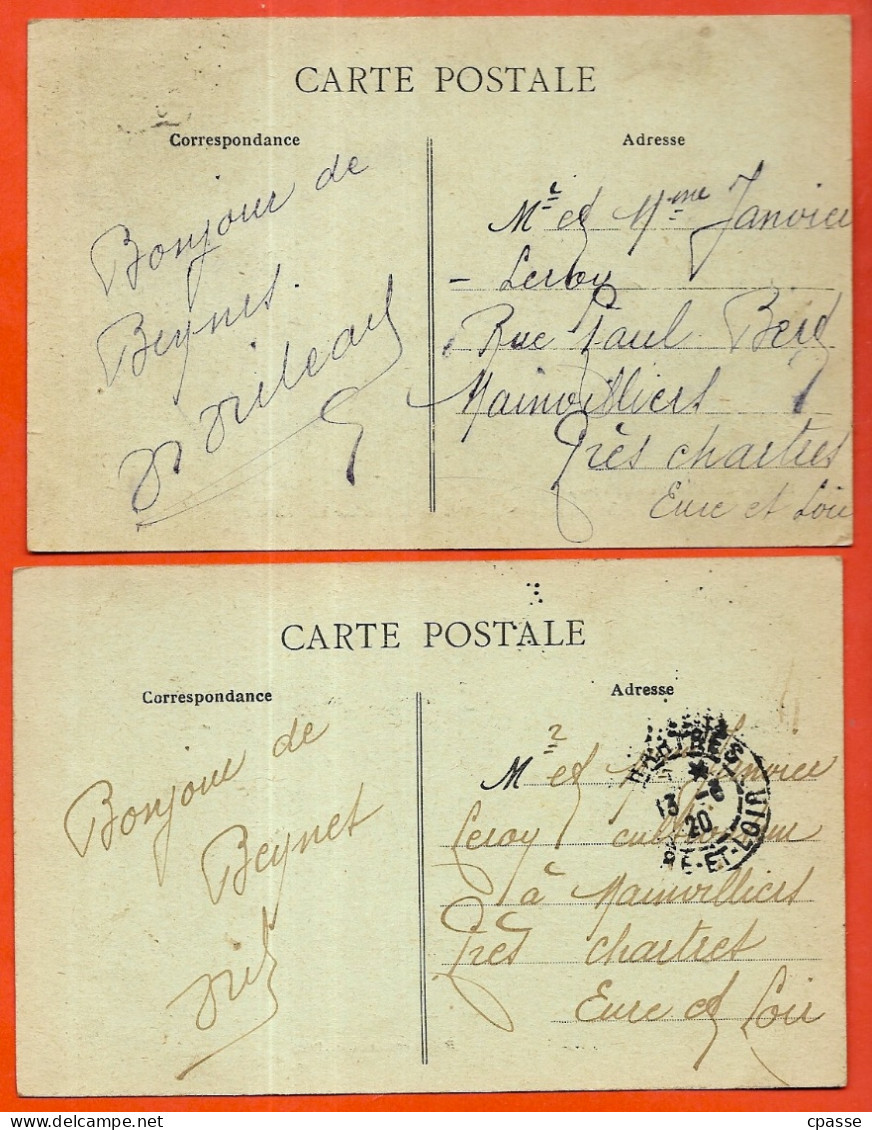 CARTE POSTALE
Correspondance
Adresse
Bonjour de
Beynes
Mr et Mme Janvier
- Leroy
Rue Paul Bert
Mainvilliers
Près chartres
Eure et Loir
CARTE POSTALE
Correspondance
Adresse
Bonjour de
Beynes
Mr et Mme Janvier
Leroy cultivateur
à Mainvilliers
Près chartres
Eure et Loir
CHARTRES
13 -8
20
RE-ET-LOIR
cpasse